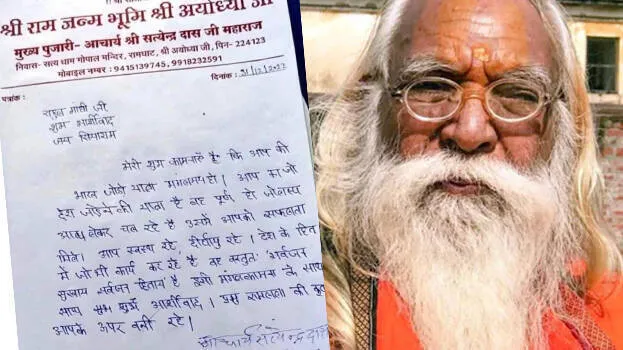 श्री राम जन्म भूमि श्री अयोध्या जी
मुख्य पुजारी- आचार्य श्री सत्येन्द्र दास जी महाराज
निवास- सत्य धाम गोपाल मन्दिर, रामघाट, श्री अयोध्या जी, पिन- 224123
मोबाईल नम्बर : 9415139745, 9918232591
पत्रांक : दिनांक : 31/12/2022
राहुल गांधी जी
शुभ आर्शीवाद
जय सियाराम
मेरी शुभ कामनाएँ है कि आप की
भारत जोड़ो यात्रा मंगलमय हो। आप का जो
देश जोड़ने की यात्रा है वह पूर्ण हो जो लक्ष्य
आप लेकर चल रहे है उसमें आपको सफलता
मिले। आप स्वस्थ रहे, दीर्घायु रहे। देश के हित
में जो भी कार्य कर रहे है वह सर्वजन
सुखाय सर्वजन हिताय है इसी मंगलकामना के साथ
साथ शुभ आर्शीवाद। प्रभु रामलला की कृपा
आपके ऊपर बनी रहे।
आचार्य सत्येन्द्र दास